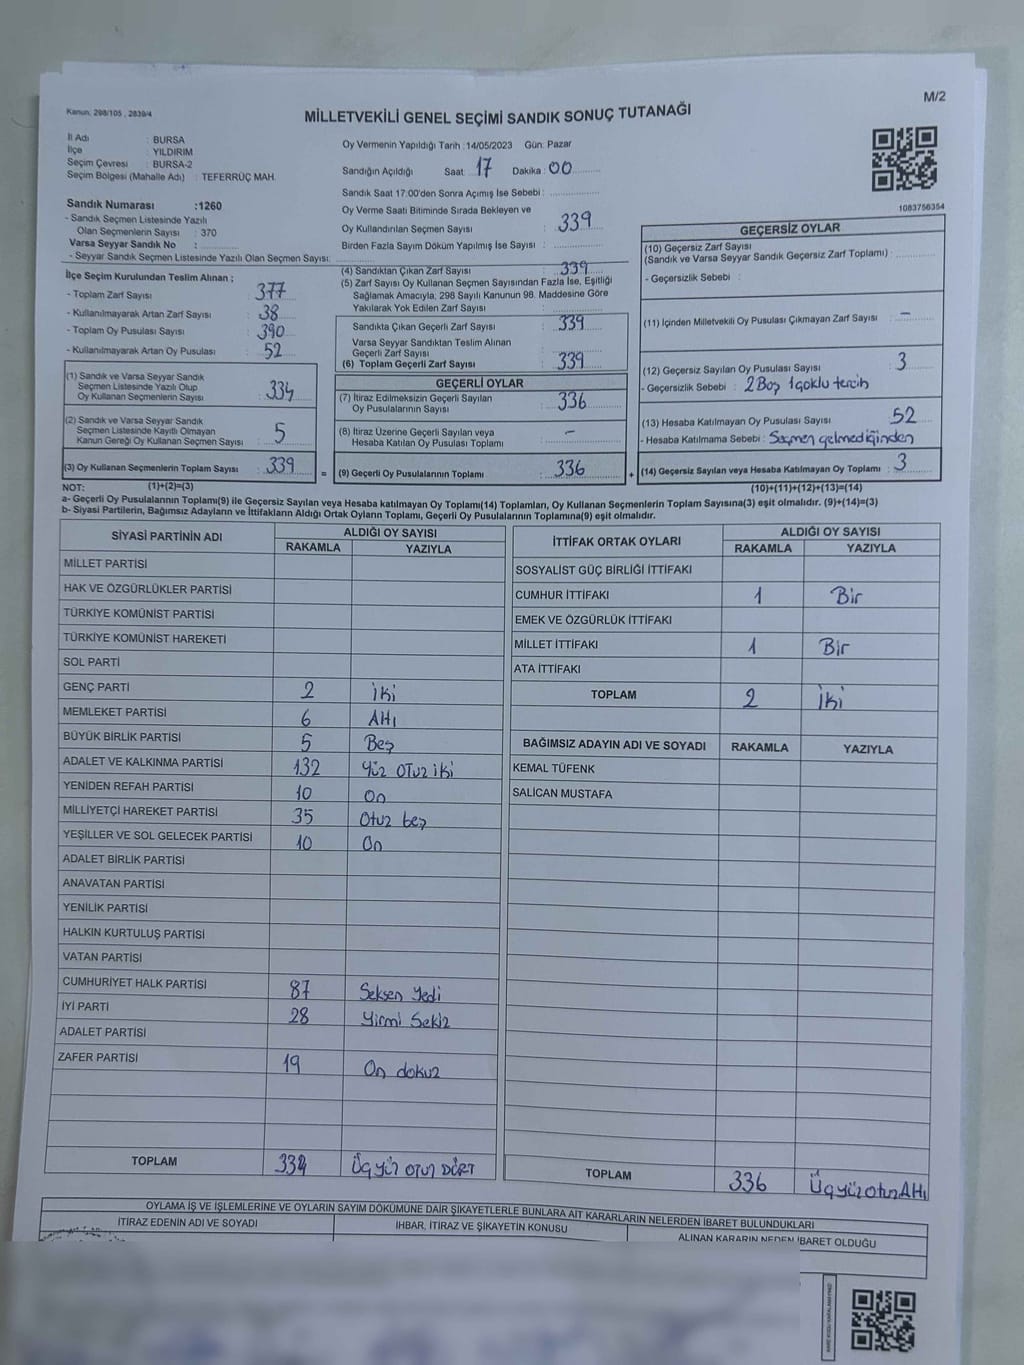 M/2
Kanun: 298/105 , 2839/4
MİLLETVEKİLİ GENEL SEÇİMİ SANDIK SONUÇ TUTANAĞI
İl Adı : BURSA
İlçe : YILDIRIM
Seçim Çevresi : BURSA-2
Seçim Bölgesi (Mahalle Adı) : TEFERRÜÇ MAH.
Sandık Numarası :1260
- Sandık Seçmen Listesinde Yazılı
Olan Seçmenlerin Sayısı : 370
Varsa Seyyar Sandık No :
- Seyyar Sandık Seçmen Listesinde Yazılı Olan Seçmen Sayısı:
Oy Vermenin Yapıldığı Tarih :14/05/2023 Gün: Pazar
Sandığın Açıldığı Saat : 17 Dakika : 00
Sandık Saat 17:00'den Sonra Açımış İse Sebebi :
Oy Verme Saati Bitiminde Sırada Bekleyen ve
Oy Kullandırılan Seçmen Sayısı : 339
Birden Fazla Sayım Döküm Yapılmış İse Sayısı :
1083756354
İlçe Seçim Kurulundan Teslim Alınan ;
- Toplam Zarf Sayısı : 377
- Kullanılmayarak Artan Zarf Sayısı : 38
- Toplam Oy Pusulası Sayısı : 390
- Kullanılmayarak Artan Oy Pusulası : 52
(1) Sandık ve Varsa Seyyar Sandık
Seçmen Listesinde Yazılı Olup
Oy Kullanan Seçmenlerin Sayısı : 334
(2) Sandık ve Varsa Seyyar Sandık
Seçmen Listesinde Kayıtlı Olmayan
Kanun Gereği Oy Kullanan Seçmen Sayısı : 5
(3) Oy Kullanan Seçmenlerin Toplam Sayısı : 339
(4) Sandıktan Çıkan Zarf Sayısı : 339
(5) Zarf Sayısı Oy Kullanan Seçmen Sayısından Fazla İse, Eşitliği
Sağlamak Amacıyla, 298 Sayılı Kanunun 98. Maddesine Göre
Yakılarak Yok Edilen Zarf Sayısı :
Sandıkta Çıkan Geçerli Zarf Sayısı : 339
Varsa Seyyar Sandıktan Teslim Alınan
Geçerli Zarf Sayısı :
(6) Toplam Geçerli Zarf Sayısı : 339
GEÇERLİ OYLAR
(7) İtiraz Edilmeksizin Geçerli Sayılan
Oy Pusulalarının Sayısı : 336
(8) İtiraz Üzerine Geçerli Sayılan veya
Hesaba Katılan Oy Pusulası Toplamı : -
= (9) Geçerli Oy Pusulalarının Toplamı : 336 +
GEÇERSİZ OYLAR
(10) Geçersiz Zarf Sayısı
(Sandık ve Varsa Seyyar Sandık Geçersiz Zarf Toplamı) :
- Geçersizlik Sebebi :
(11) İçinden Milletvekili Oy Pusulası Çıkmayan Zarf Sayısı : -
(12) Geçersiz Sayılan Oy Pusulası Sayısı : 3
- Geçersizlik Sebebi : 2 Boş 1 çoklu tercih
(13) Hesaba Katılmayan Oy Pusulası Sayısı : 52
- Hesaba Katılmama Sebebi : Seçmen gelmediğinden
(14) Geçersiz Sayılan veya Hesaba Katılmayan Oy Toplamı : 3
NOT: (1)+(2)=(3) (10)+(11)+(12)+(13)=(14)
a- Geçerli Oy Pusulalarının Toplamı(9) ile Geçersiz Sayılan veya Hesaba katılmayan Oy Toplamı(14) Toplamları, Oy Kullanan Seçmenlerin Toplam Sayısına(3) eşit olmalıdır. (9)+(14)=(3)
b- Siyasi Partilerin, Bağımsız Adayların ve İttifakların Aldığı Ortak Oyların Toplamı, Geçerli Oy Pusulalarının Toplamına(9) eşit olmalıdır.
SİYASİ PARTİNİN ADI ALDIĞI OY SAYISI
RAKAMLA YAZIYLA
MİLLET PARTİSİ
HAK VE ÖZGÜRLÜKLER PARTİSİ
TÜRKİYE KOMÜNİST PARTİSİ
TÜRKİYE KOMÜNİST HAREKETİ
SOL PARTİ
GENÇ PARTİ 2 iki
MEMLEKET PARTİSİ 6 Altı
BÜYÜK BİRLİK PARTİSİ 5 Beş
ADALET VE KALKINMA PARTİSİ 132 Yüz OTuz iki
YENİDEN REFAH PARTİSİ 10 On
MİLLİYETÇİ HAREKET PARTİSİ 35 Otuz beş
YEŞİLLER VE SOL GELECEK PARTİSİ 10 On
ADALET BİRLİK PARTİSİ
ANAVATAN PARTİSİ
YENİLİK PARTİSİ
HALKIN KURTULUŞ PARTİSİ
VATAN PARTİSİ
CUMHURİYET HALK PARTİSİ 87 Seksen Yedi
İYİ PARTİ 28 Yirmi Sekiz
ADALET PARTİSİ
ZAFER PARTİSİ 19 On dokuz
TOPLAM 334 Üçyüz OTUZ DÖRT
İTTİFAK ORTAK OYLARI ALDIĞI OY SAYISI
RAKAMLA YAZIYLA
SOSYALİST GÜÇ BİRLİĞİ İTTİFAKI
CUMHUR İTTİFAKI 1 Bir
EMEK VE ÖZGÜRLÜK İTTİFAKI
MİLLET İTTİFAKI 1 Bir
ATA İTTİFAKI
TOPLAM 2 iki
BAĞIMSIZ ADAYIN ADI VE SOYADI RAKAMLA YAZIYLA
KEMAL TÜFENK
SALİCAN MUSTAFA
TOPLAM 336 ÜçyüzotuzAltı
OYLAMA İŞ VE İŞLEMLERİNE VE OYLARIN SAYIM DÖKÜMÜNE DAİR ŞİKAYETLERLE BUNLARA AİT KARARLARIN NELERDEN İBARET BULUNDUKLARI
İTİRAZ EDENİN ADI VE SOYADI İHBAR, İTİRAZ VE ŞİKAYETİN KONUSU ALINAN KARARIN NEDEN İBARET OLDUĞU